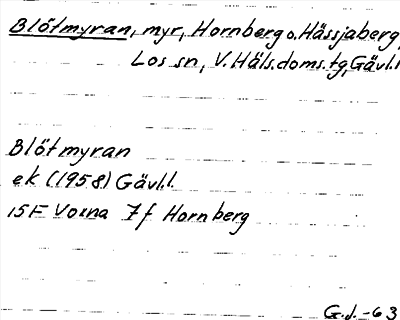 Blötmyran, myr, Hornberg o. Hässjaberg,
Los sn, V. Häls. doms. tg, Gävl.l
Blötmyran
ek (1958) Gävl.l.
15F Voxna 7f Hornberg
G.J. -63